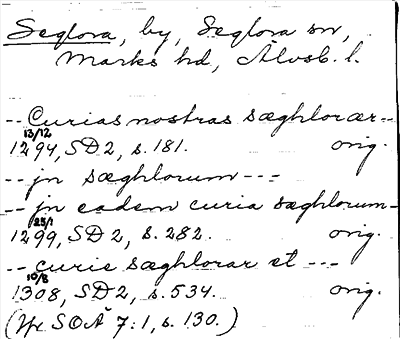 Seglora, by, Seglora sn,
Marks hd, Älvsb. l.
-- Curias nostras sæghlorær --
13/12
1294, SD2, s. 181. orig.
-- jn sæghlorum ---
-- jn eadem curia sæghlorum -
25/1
1299, SD2, s. 282. orig.
-- curie sæghlorar et ---
10/8
1308, SD2, s. 534. orig.
(Jfr SOÄ 7:1, s. 130.)